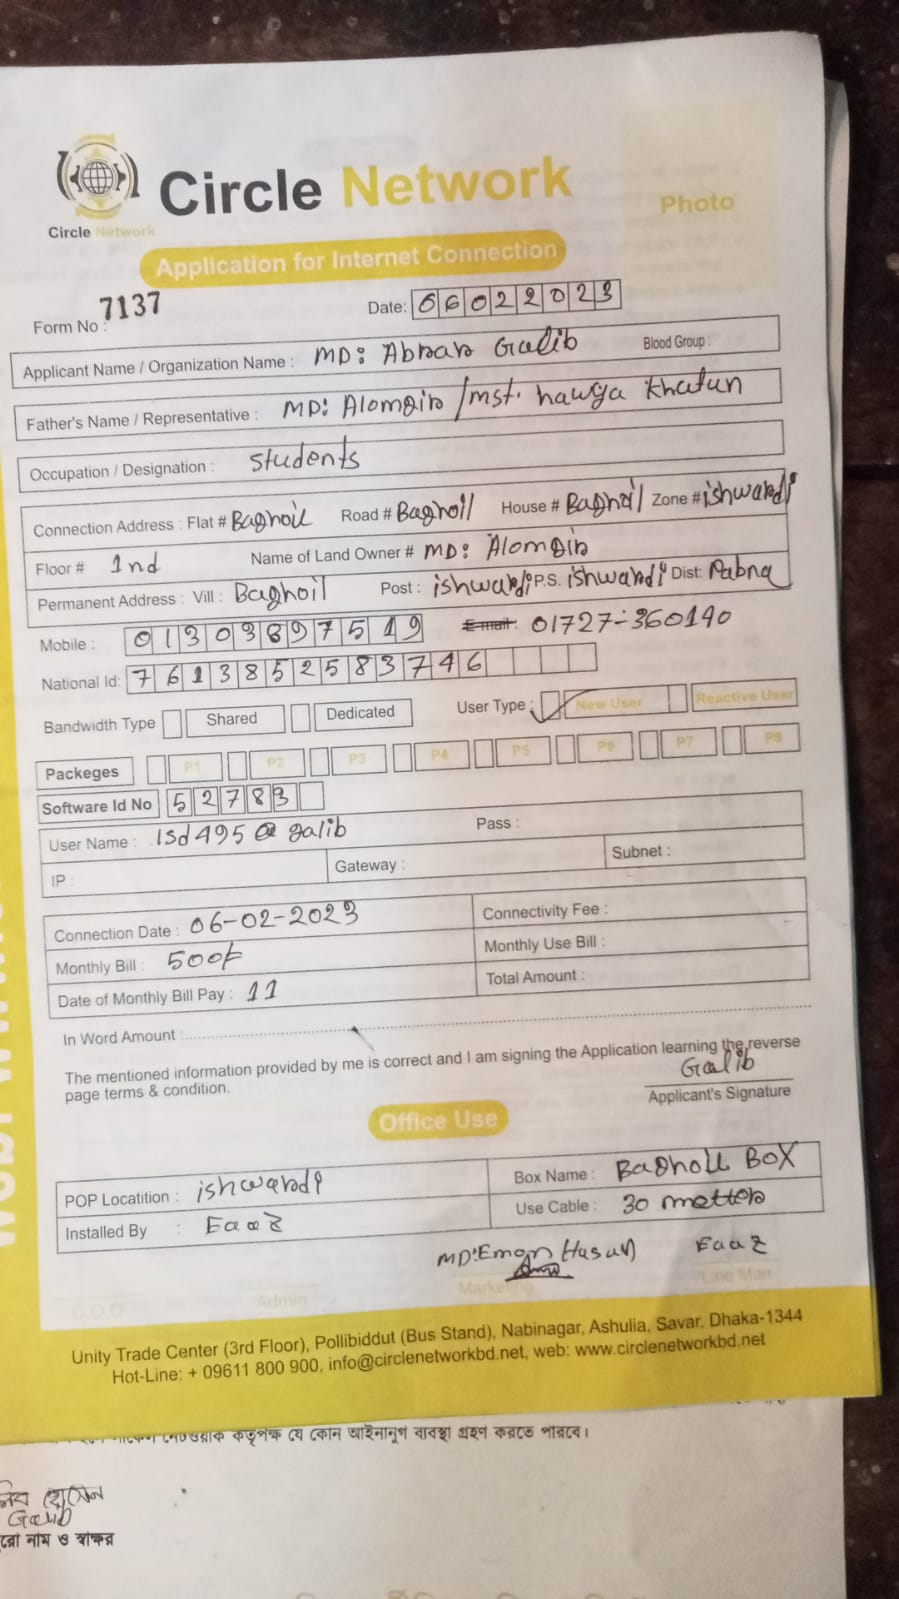 Circle Network
Circle Network
Photo
Application for Internet Connection
Form No : 7137
Date: 06022023
Applicant Name / Organization Name : MD: Abrar Galib Blood Group :
Father's Name / Representative : MD: Alomgir / mst. hawya khatun
Occupation / Designation : students
Connection Address : Flat # Baghoil Road # Baghoil House # Baghoil Zone # ishwardi
Floor # 1nd Name of Land Owner # MD: Alomgir
Permanent Address : Vill : Baghoil Post : ishwardi P.S. ishwardi Dist: Pabna
Mobile : 01303897519 Email: 01727-360140
National Id: 7613852583746
Bandwidth Type Shared Dedicated User Type : New User Reactive User
Packeges P1 P2 P3 P4 P5 P6 P7 P8
Software Id No 52783
User Name : ISd495@galib Pass :
IP : Gateway : Subnet :
Connection Date : 06-02-2023 Connectivity Fee :
Monthly Bill : 500/- Monthly Use Bill :
Date of Monthly Bill Pay : 11 Total Amount :
In Word Amount :
The mentioned information provided by me is correct and I am signing the Application learning the reverse
page terms & condition.
Galib
Applicant's Signature
Office Use
POP Locatition : ishwardi Box Name : Baghoil BOX
Installed By : Eaaz Use Cable : 30 metter
MD: Emon Hasan Eaaz
C O O Admin Marketing Line Man
Unity Trade Center (3rd Floor), Pollibiddut (Bus Stand), Nabinagar, Ashulia, Savar, Dhaka-1344
Hot-Line: + 09611 800 900, info@circlenetworkbd.net, web: www.circlenetworkbd.net
কর্তৃপক্ষ যে কোন আইনানুগ ব্যবস্থা গ্রহণ করতে পারবে।
Galib
নাম ও স্বাক্ষর